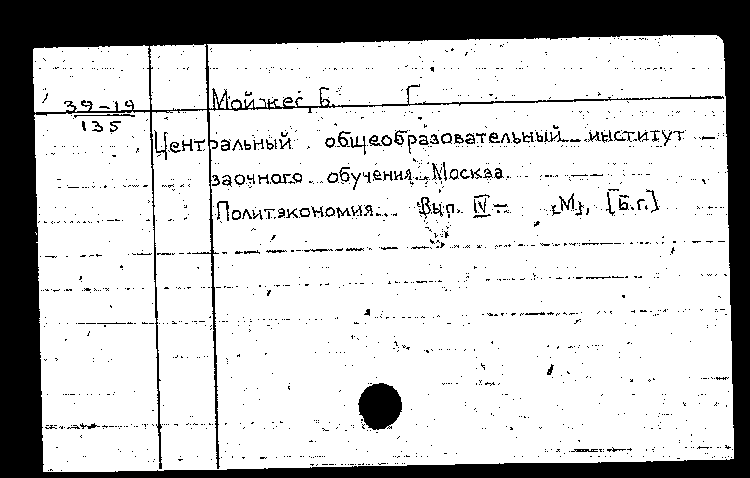 39-19
135
Мойжес, Б. Г.
Центральный общеобразовательный институт
заочного обучения. Москва.
Политэкономия. Вып. IV- [М], [Б.г.]